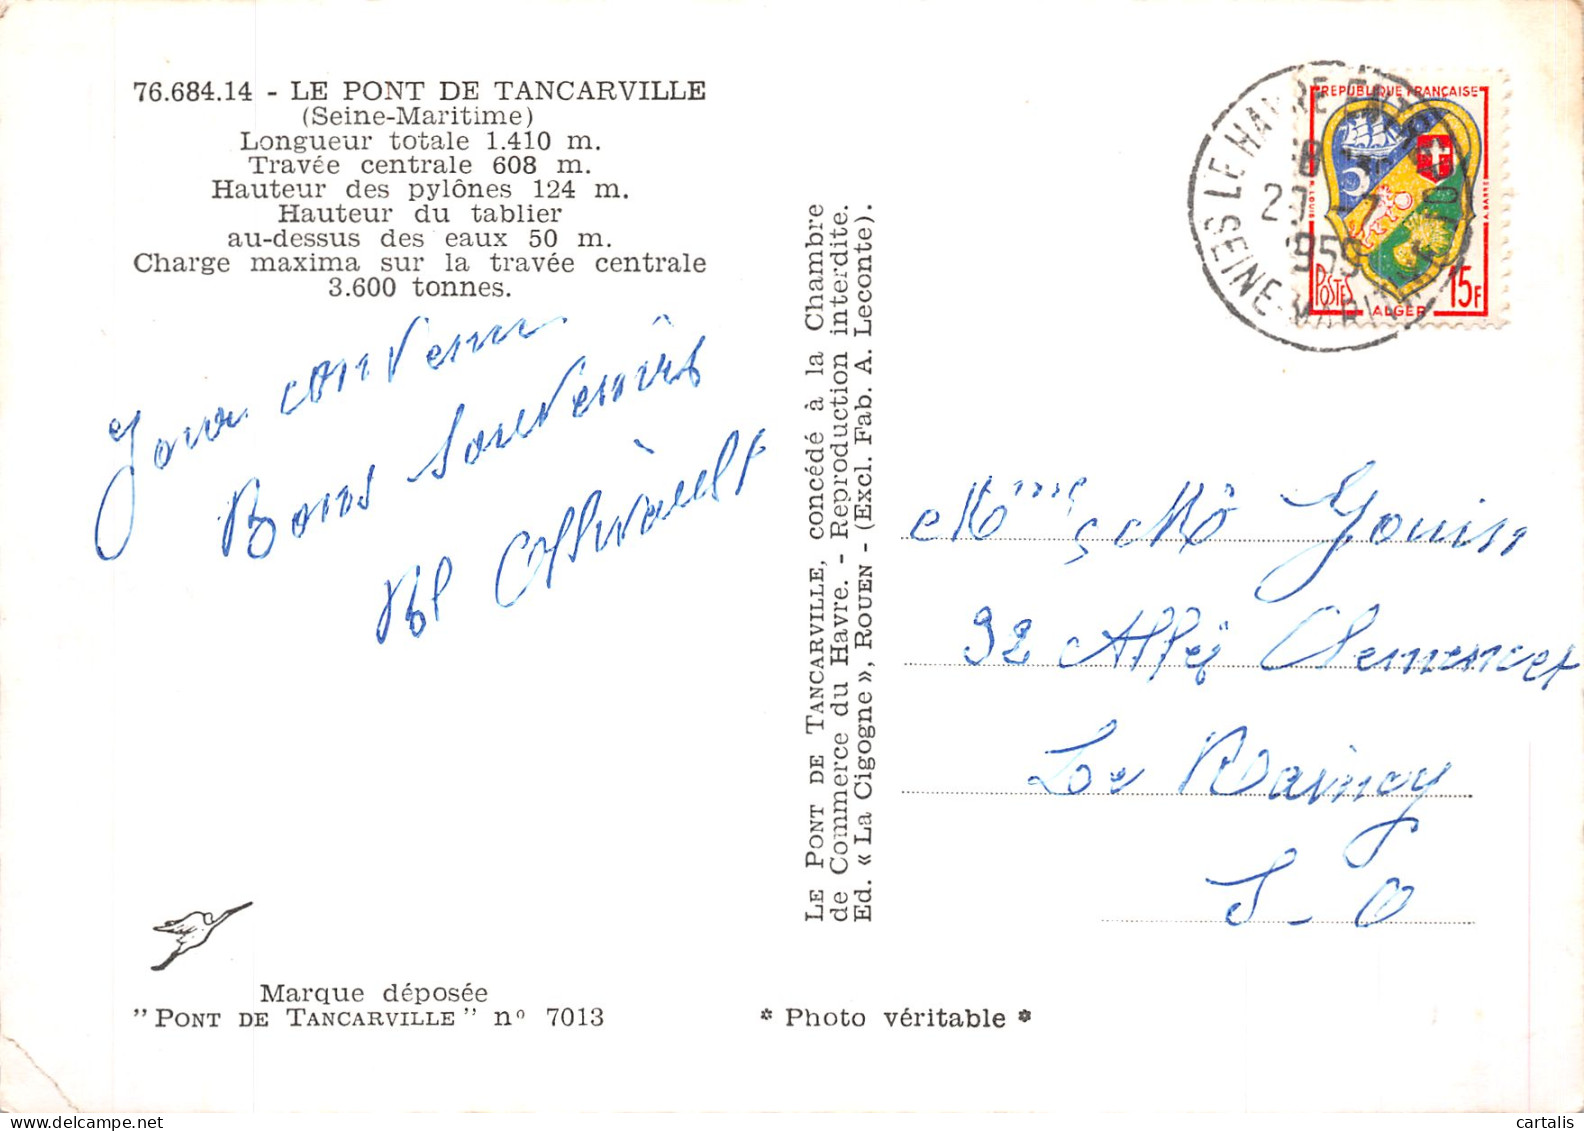 76.684.14 - LE PONT DE TANCARVILLE
(Seine-Maritime)
Longueur totale 1.410 m.
Travée centrale 608 m.
Hauteur des pylônes 124 m.
Hauteur du tablier
au-dessus des eaux 50 m.
Charge maxima sur la travée centrale
3.600 tonnes.
convenu
Bons Souvenirs
Marque déposée
"PONT DE TANCARVILLE" nº 7013
LE PONT DE TANCARVILLE, concédé à la Chambre
de Commerce du Havre. - Reproduction interdite.
Ed. « La Cigogne », ROUEN - (Excl. Fab. A. Leconte).
* Photo véritable *
LE HAVRE
SEINE-MARITIME
1959
REPUBLIQUE FRANÇAISE
POSTES
ALGER
15F
A. BARRE
Gouin
92 Allée Clemencet
Le Rainçy
S-O
cartalis